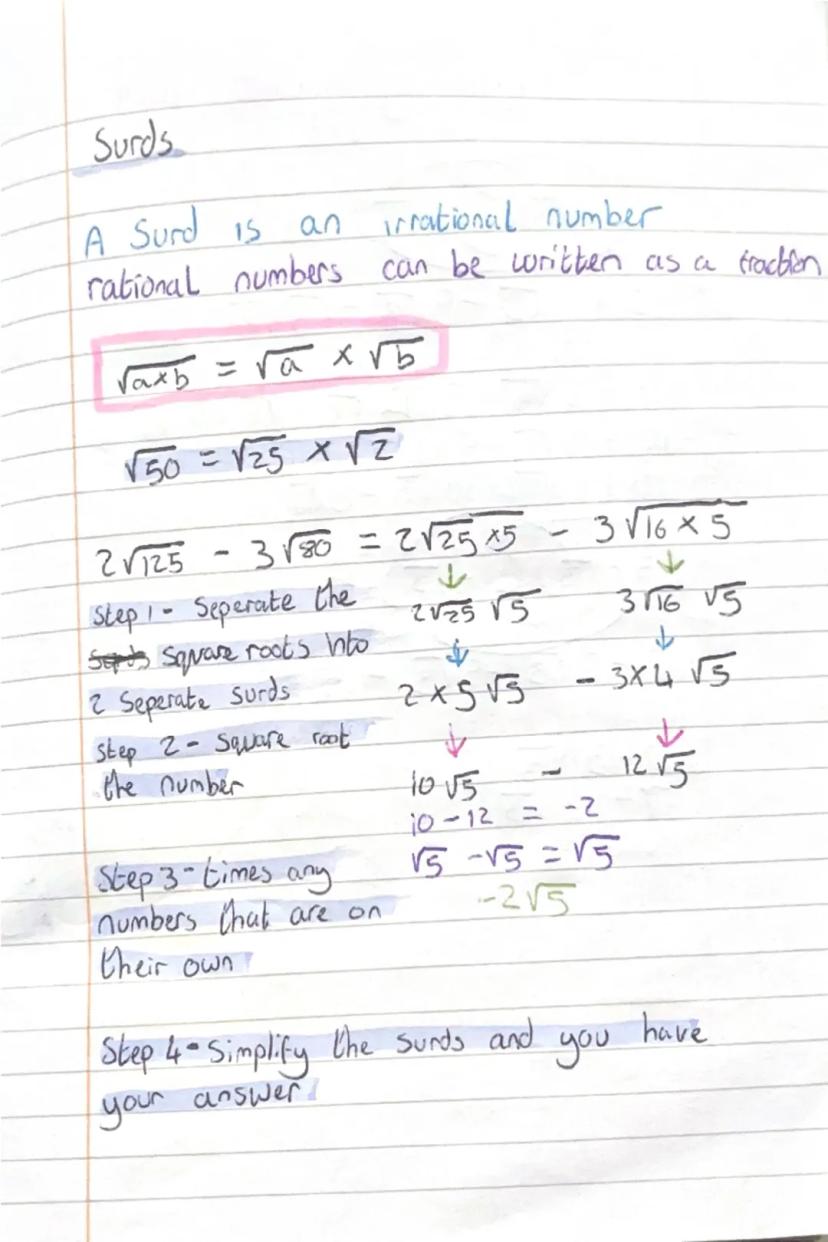 Surds
A Surd is an irrational number
rational numbers can be written as a fraction
√a×b = √a × √b
√50 = √25 × √2
2√125 - 3√80 = 2√25×5 - 3√16×5
Step 1 - Seperate the
square roots into
2 Seperate surds
step 2 - Square root
the number
↓ ↓
2√25 √5 3√16 √5
↓ ↓
2×5√5 - 3×4√5
↓ ↓
10√5 - 12√5
10-12 = -2
√5 -√5 = √5
-2√5
Step 3 - times any
numbers that are on
their own
Step 4 - Simplify the surds and you have
your answer